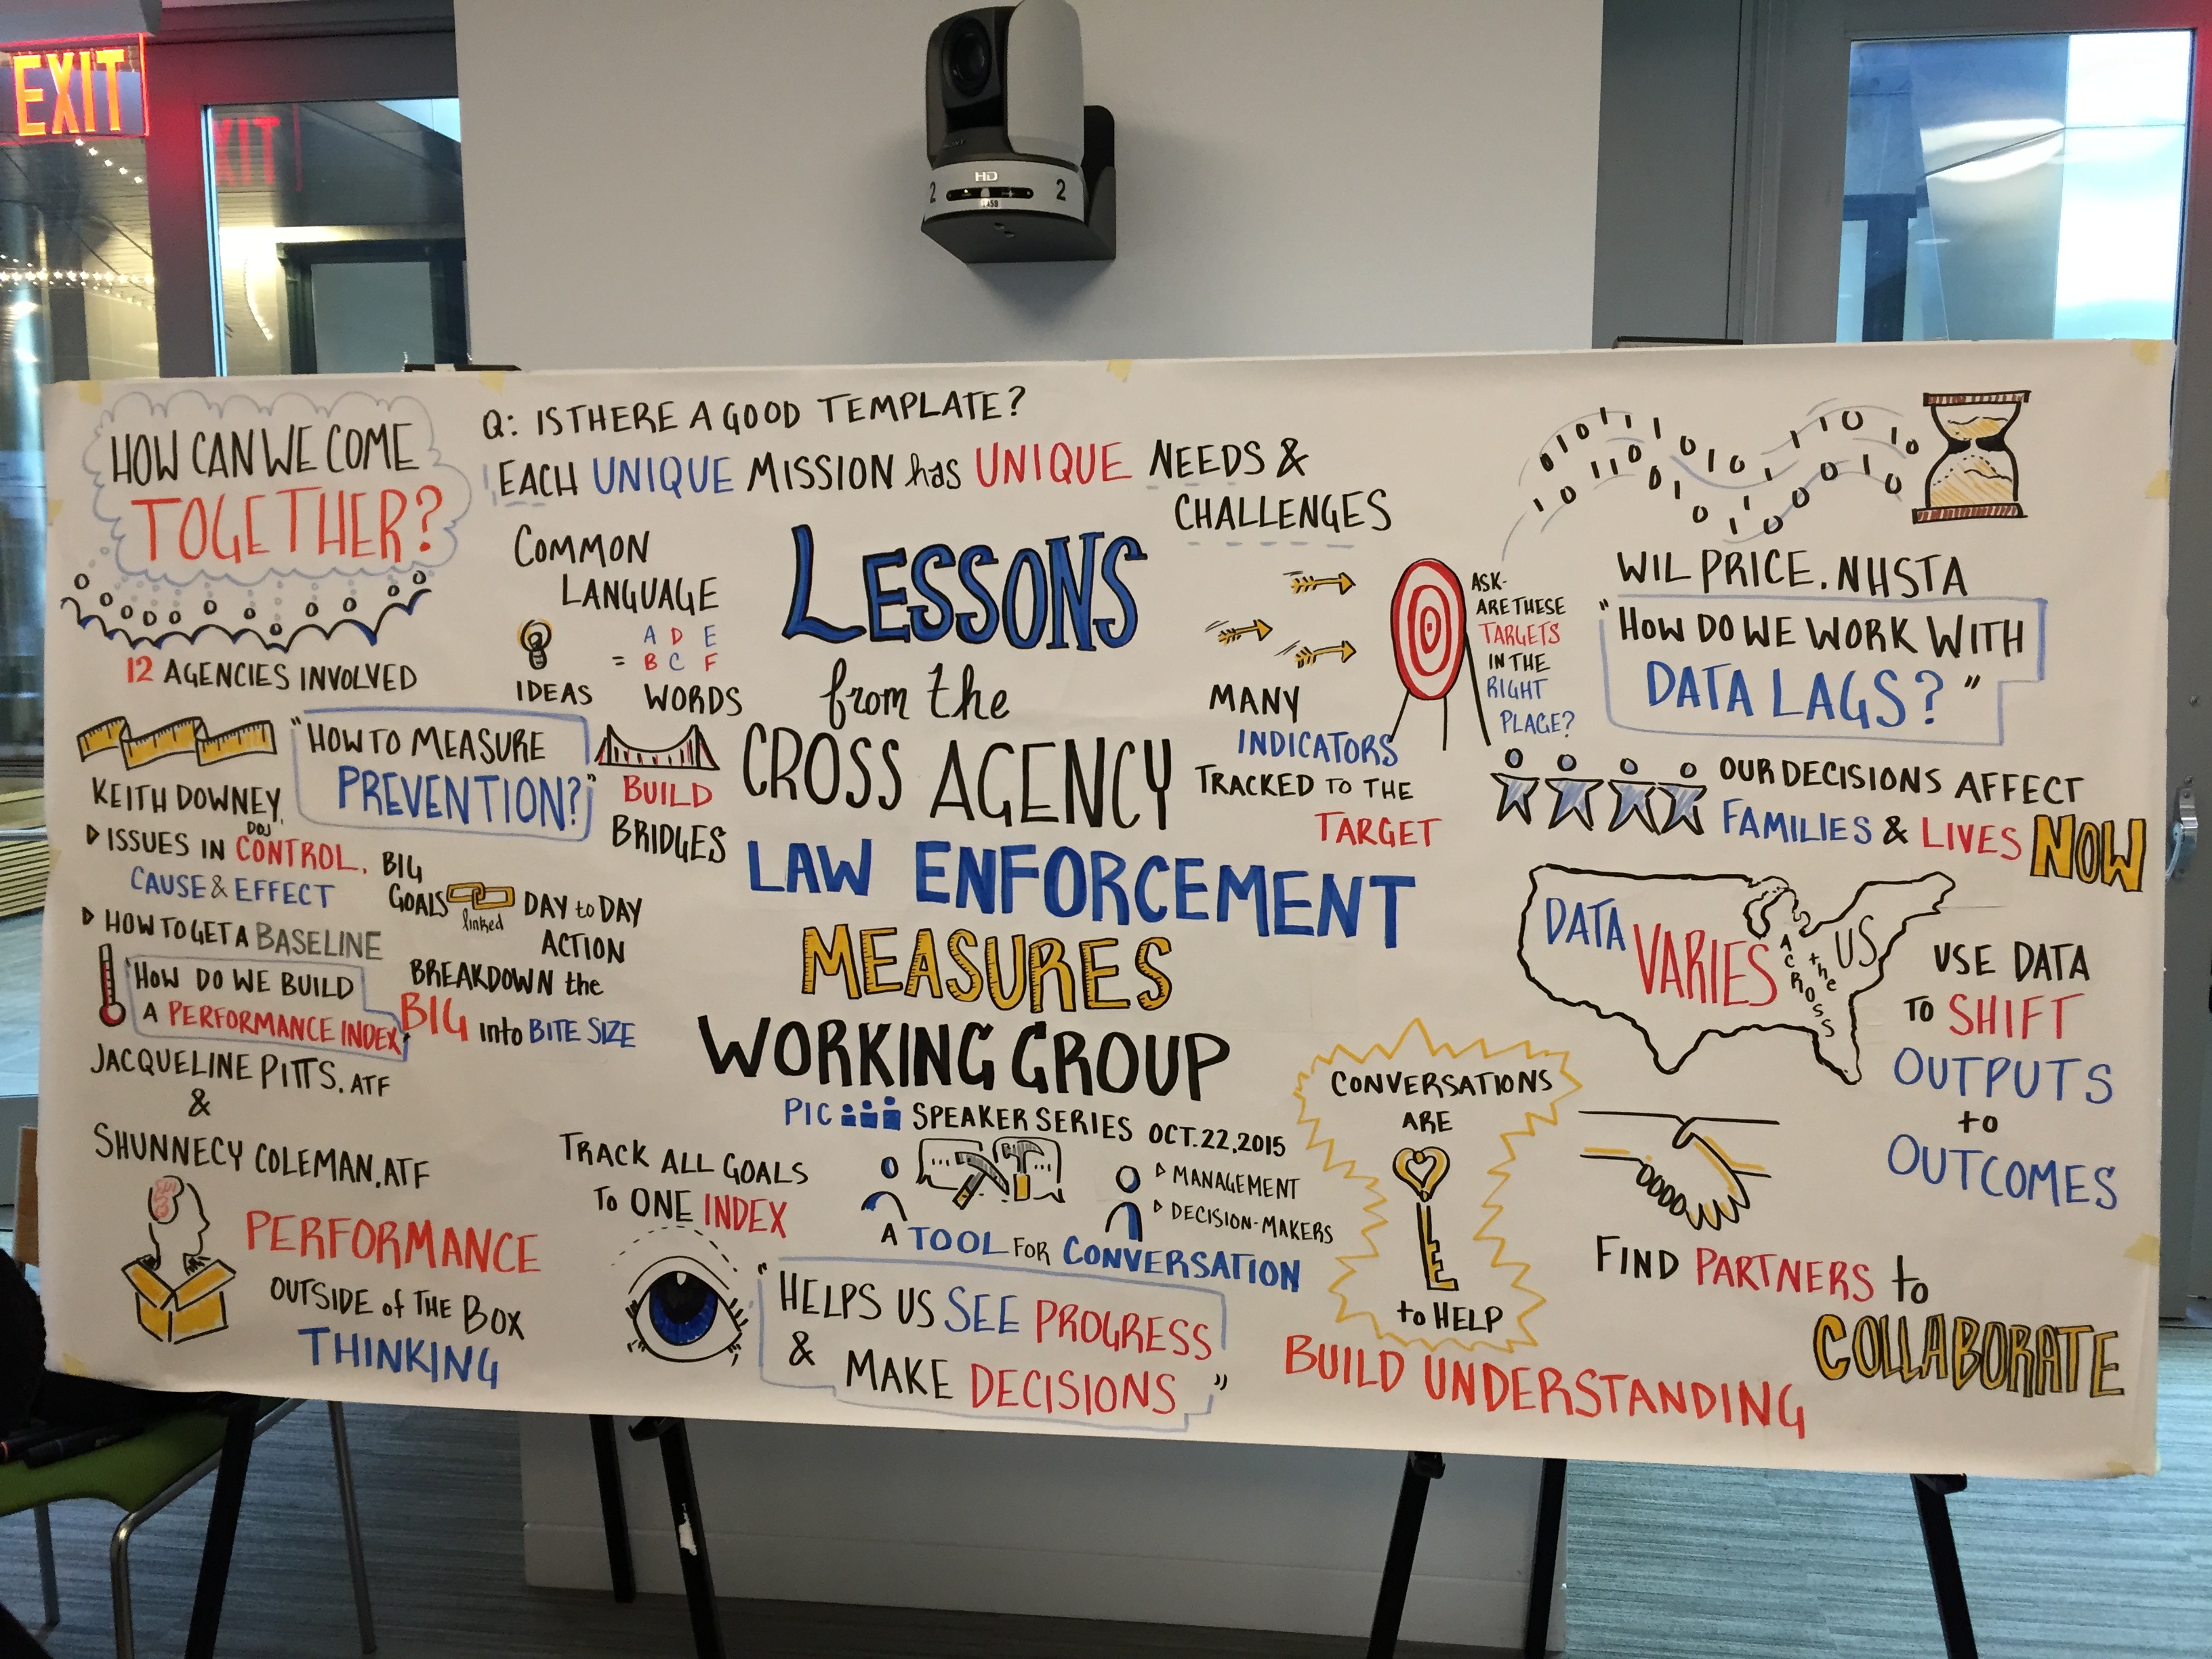 EXIT
XIT
HD
2
2
HOW CAN WE COME
TOGETHER?
12 AGENCIES INVOLVED
Q: IS THERE A GOOD TEMPLATE?
EACH UNIQUE MISSION has UNIQUE NEEDS &
CHALLENGES
COMMON
LANGUAGE
A D E
= B C F
IDEAS WORDS
"HOW TO MEASURE
PREVENTION?"
KEITH DOWNEY,
DOJ
ISSUES IN CONTROL,
CAUSE & EFFECT
HOW TO GET A BASELINE
"HOW DO WE BUILD
A PERFORMANCE INDEX"
JACQUELINE PITTS. ATF
&
SHUNNECY COLEMAN, ATF
PERFORMANCE
OUTSIDE of THE BOX
THINKING
BUILD
BRIDGES
BIG
GOALS linked DAY to DAY
ACTION
BREAKDOWN the
BIG into BITE SIZE
LESSONS
from the
CROSS AGENCY
LAW ENFORCEMENT
MEASURES
WORKING GROUP
PIC SPEAKER SERIES OCT. 22, 2015
TRACK ALL GOALS
TO ONE INDEX
MANAGEMENT
DECISION-MAKERS
A TOOL FOR CONVERSATION
"HELPS US SEE PROGRESS
& MAKE DECISIONS"
MANY
INDICATORS
TRACKED TO THE
TARGET
ASK-
ARE THESE
TARGETS
IN THE
RIGHT
PLACE?
1010111010110101
101100110001010
WIL PRICE. NHSTA
"HOW DO WE WORK WITH
DATA LAGS?"
OUR DECISIONS AFFECT
FAMILIES & LIVES NOW
DATA VARIES ACROSS the US
USE DATA
TO SHIFT
OUTPUTS
to
OUTCOMES
CONVERSATIONS
ARE
KEY
to HELP
BUILD UNDERSTANDING
FIND PARTNERS to
COLLABORATE